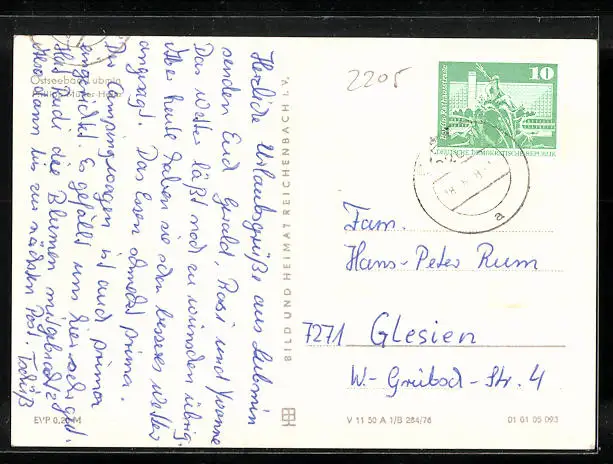 Ostseebad Lubmin
"Philipp-Müller-Heim"
Herzliche Urlaubsgrüße aus Lubmin
senden Euch Gerald, Rosi und Yvonne
Das Wetter läßt noch zu wünschen übrig.
Aber heute haben sie schon besseres Wetter
angesagt. Das Essen schmeckt prima.
Der Campingwagen ist auch prima
eingerichtet. Es gefällt uns hier sehr gut.
Hat Rudi die Blumen mitgebracht?
also dann bis zur nächsten Post. Tschüß
EVP 0,20 M
BILD UND HEIMAT REICHENBACH i. V.
2205
10
Berlin, Rathausstraße
DEUTSCHE DEMOKRATISCHE REPUBLIK
a
Fam.
Hans-Peter Rum
7271 Glesien
W.-Str. 4
V 11 50 A 1/B 284/76
01 01 05 093